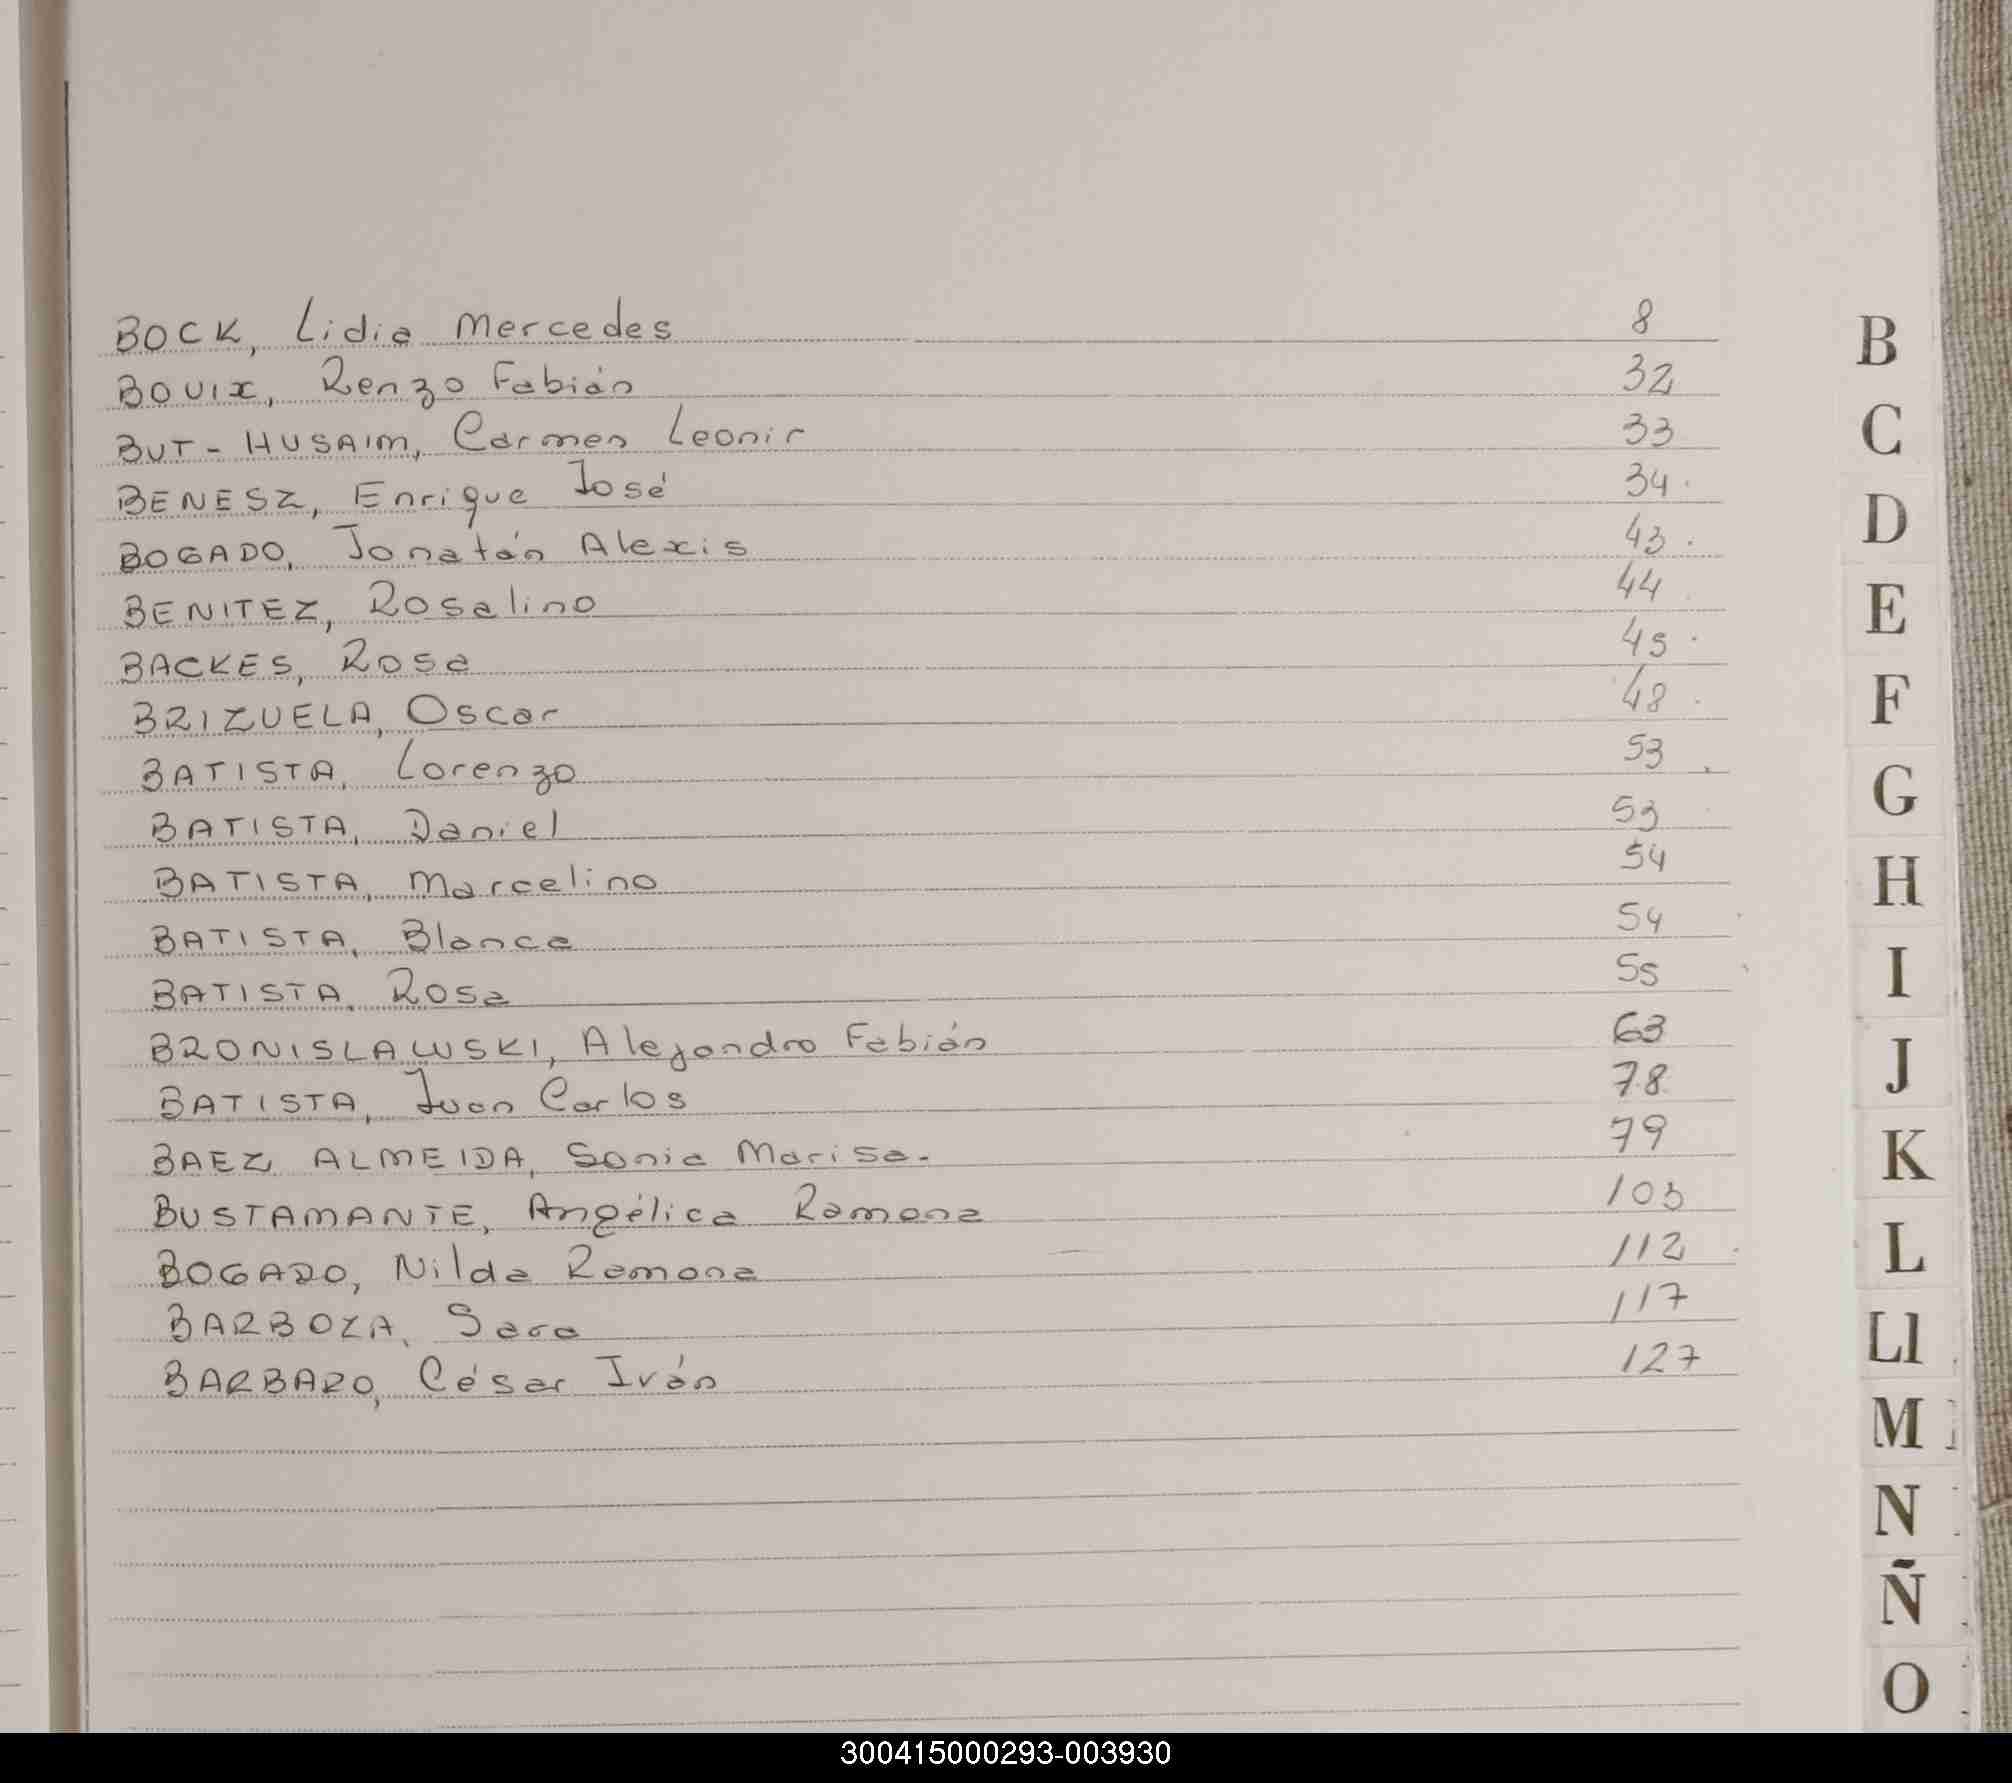 BOCK, Lidia Mercedes 8
BOUIX, Renzo Fabián 32
BUT-HUSAIM, Carmen Leonir 33
BENESZ, Enrique José 34
BOGADO, Jonatán Alexis 43
BENITEZ, Rosalino 44
BACKES, Rosa 45
BRIZUELA, Oscar 48
BATISTA, Lorenzo 53
BATISTA, Daniel 53
BATISTA, Marcelino 54
BATISTA, Blanca 54
BATISTA, Rosa 55
BRONISLAWSKI, Alejandro Fabián 63
BATISTA, Juan Carlos 78
BAEZ ALMEIDA, Sonia Marisa. 79
BUSTAMANTE, Angélica Ramona 103
BOGADO, Nilda Ramona 112
BARBOZA, Sara 117
BARBARO, César Iván 127
B
C
D
E
F
G
H
I
J
K
L
Ll
M
N
Ñ
O
300415000293-003930